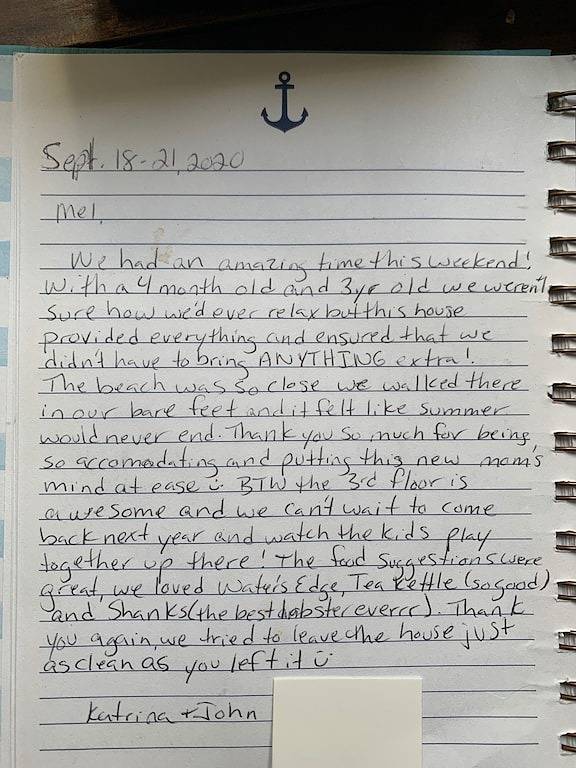 Sept. 18-21, 2020
Mel,
We had an amazing time this weekend!
With a 4 month old and 3yr old we weren't
sure how we'd ever relax but this house
provided everything and ensured that we
didn't have to bring ANYTHING extra!
The beach was so close we walked there
in our bare feet and it felt like summer
would never end. Thank you so much for being
so accomodating and putting this new mom's
mind at ease :) BTW the 3rd floor is
awesome and we can't wait to come
back next year and watch the kids play
together up there! The food suggestions were
great, we loved Water's Edge, Tea Kettle (so good)
and Shanks (the best lobster everrr). Thank
you again, we tried to leave the house just
as clean as you left it :)
Katrina + John